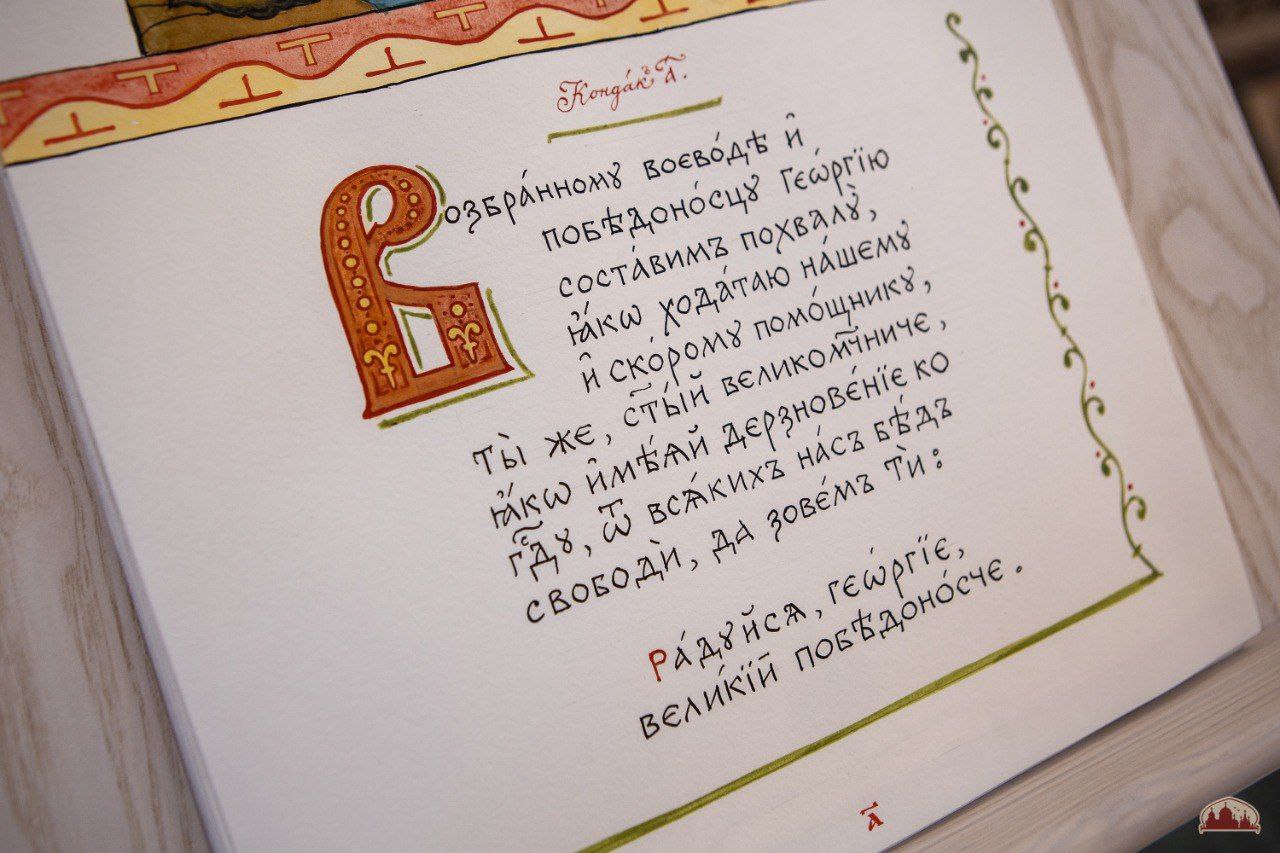 Конда́къ а҃.
Возбра́нному воево́дѣ и҆
побѣдоно́сцу гео́ргїю
соста́вимъ похвалу̀,
ꙗ҆́кѡ хода́таю на́шему
и҆ ско́рому помо́щнику,
ты̀ же, ст҃ы́й великомч҃ниче,
ꙗ҆́кѡ и҆мѣ́ѧй дерзнове́нїе ко
гдⷭ҇у, ѿ всѧ́кихъ на́съ бѣ́дъ
свободѝ, да зове́мъ тѝ:
Ра́дуйсѧ, геѡ́ргїе,
вели́кїй побѣдоно́сче.
а҃